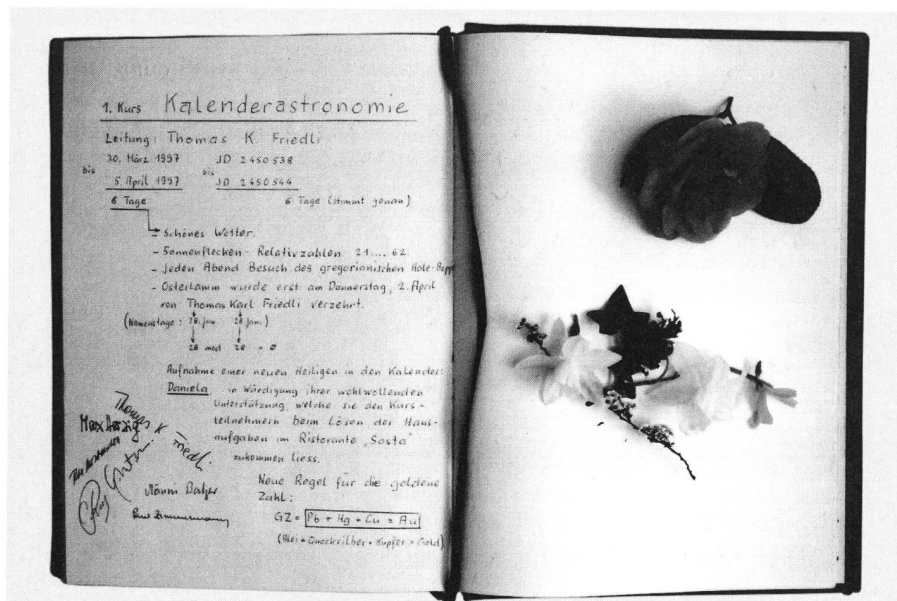 1. Kurs Kalenderastronomie
Leitung: Thomas K. Friedli
30. März 1997 JD 2450538
bis bis
5. April 1997 JD 2450544
6 Tage 6 Tage (stimmt genau)
- Schönes Wetter.
- Sonnenflecken-Relativzahlen 21 .... 62
- Jeden Abend Besuch des gregorianischen Hale-Bopp
- Osterlamm wurde erst am Donnerstag, 2. April
von Thomas Karl Friedli verzehrt.
(Namenstage: 28. Jan. 28. Jan.)
28 mod 28 = 0
Aufnahme einer neuen Heiligen in den Kalender:
Daniela in Würdigung ihrer wohlwollenden
Unterstützung, welche sie den Kurs-
teilnehmern beim Lösen der Haus-
aufgaben im Ristorante "Sosta"
zukommen liess.
Thomas K. Friedli
Neue Regel für die goldene
Zahl:
GZ = Pb + Hg + Cu = Au
(Blei + Quecksilber + Kupfer = Gold)